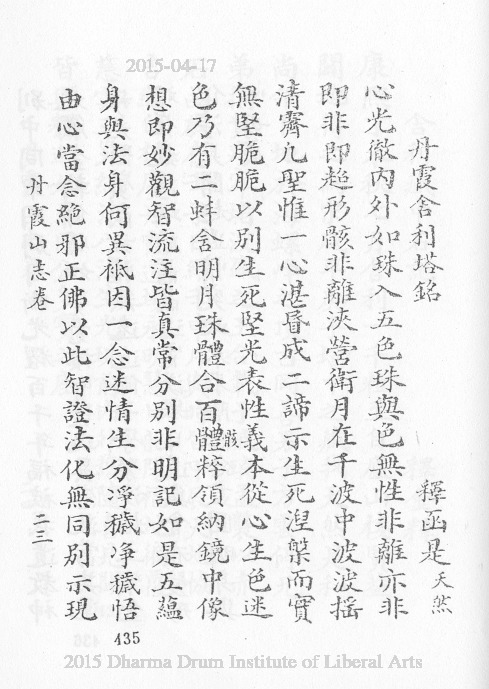 2015-04-17
丹霞舍利塔銘 釋函是天然
心光徹內外如珠入五色珠與色無性非離亦非
即非即超形骸非離浹營衛月在千波中波波搖
清霽凡聖惟一心湛昏成二諦示生死涅槃而實
無堅脆脆以別生死堅光表性義本從心生色迷
色乃有二蚌含明月珠體合百體骸粹領納鏡中像
想即妙觀智流注皆真常分別非明記如是五蘊
身與法身何異祇因一念迷情生分淨穢淨穢悟
由心當念絕邪正佛以此智證法化無同別示現
丹霞山志卷 二三
435
2015 Dharma Drum Institute of Liberal Arts